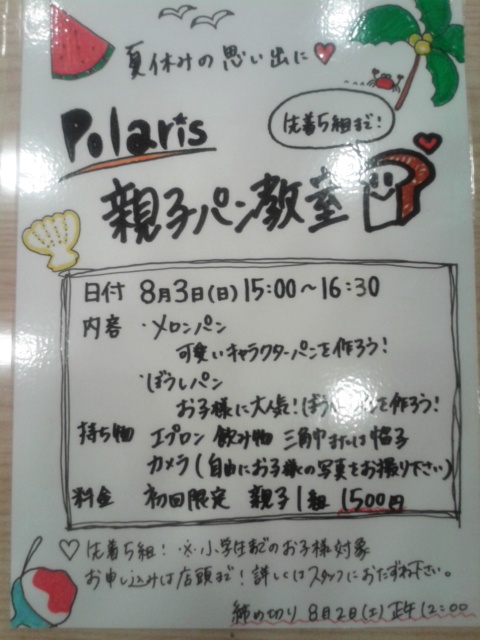 夏休みの思い出に♥
Polaris
先着5組まで!
親子パン教室
日付 8月3日(日)15:00~16:30
内容 ・メロンパン
可愛いキャラクターパンを作ろう!
・ぼうしパン
お子様に大人気!ぼうしパンを作ろう!
持ち物 エプロン 飲み物 三角巾または帽子
カメラ(自由にお子様の写真をお撮り下さい)
料金 初回限定 親子1組 1500円
♡先着5組! ※小学生までのお子様対象
お申し込みは店頭まで!詳しくはスタッフにおたずね下さい。
締め切り 8月2日(土)正午12:00